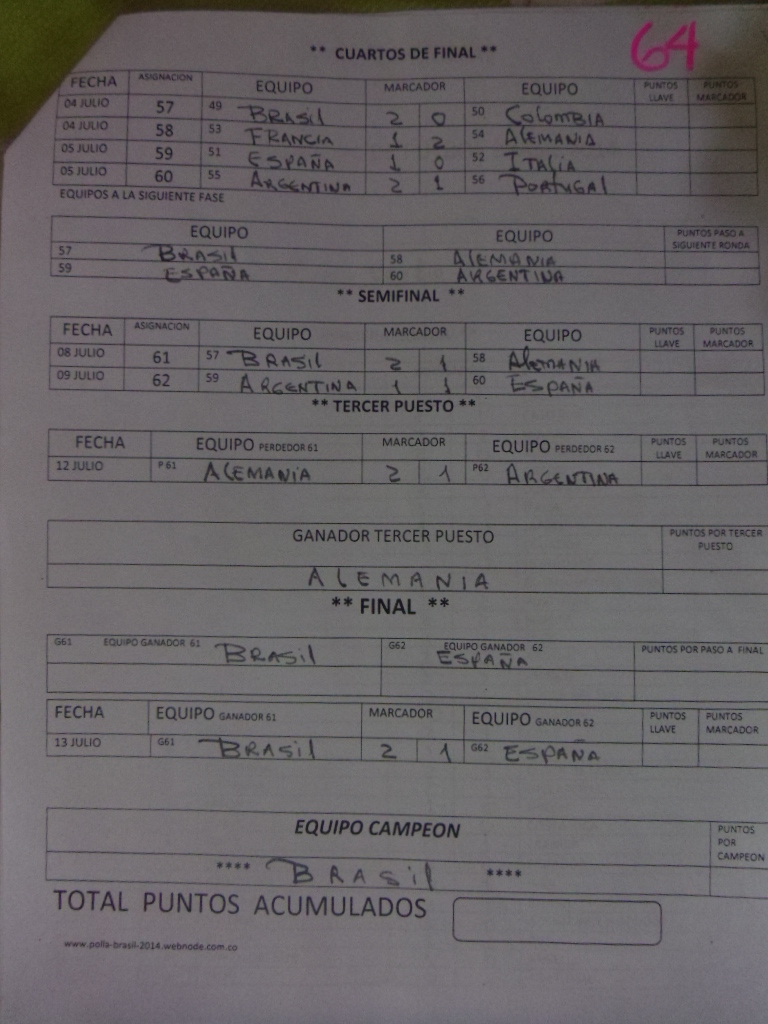 64
** CUARTOS DE FINAL **
FECHA ASIGNACION EQUIPO MARCADOR EQUIPO PUNTOS LLAVE PUNTOS MARCADOR
04 JULIO 57 49 BRASil 2 0 50 COlOMBIA
04 JULIO 58 53 FRANCIA 1 2 54 AlEMANIA
05 JULIO 59 51 ESPAÑA 1 0 52 ITAliA
05 JULIO 60 55 ARGENTINA 2 1 56 PORTUGAl
EQUIPOS A LA SIGUIENTE FASE
EQUIPO EQUIPO PUNTOS PASO A SIGUIENTE RONDA
57 BRASil 58 AlEMANIA
59 ESPAÑA 60 ARGENTINA
** SEMIFINAL **
FECHA ASIGNACION EQUIPO MARCADOR EQUIPO PUNTOS LLAVE PUNTOS MARCADOR
08 JULIO 61 57 BRASil 2 1 58 AlEMANIA
09 JULIO 62 59 ARGENTINA 1 1 60 ESPAÑA
** TERCER PUESTO **
FECHA EQUIPO PERDEDOR 61 MARCADOR EQUIPO PERDEDOR 62 PUNTOS LLAVE PUNTOS MARCADOR
12 JULIO P 61 AlEMANIA 2 1 P62 ARGENTINA
GANADOR TERCER PUESTO PUNTOS POR TERCER PUESTO
AlEMANIA
** FINAL **
G61 EQUIPO GANADOR 61 BRASil G62 EQUIPO GANADOR 62 ESPAÑA PUNTOS POR PASO A FINAL
FECHA EQUIPO GANADOR 61 MARCADOR EQUIPO GANADOR 62 PUNTOS LLAVE PUNTOS MARCADOR
13 JULIO G61 BRASil 2 1 G62 ESPAÑA
EQUIPO CAMPEON PUNTOS POR CAMPEON
**** BRASil ****
TOTAL PUNTOS ACUMULADOS
www.polla-brasil-2014.webnode.com.co